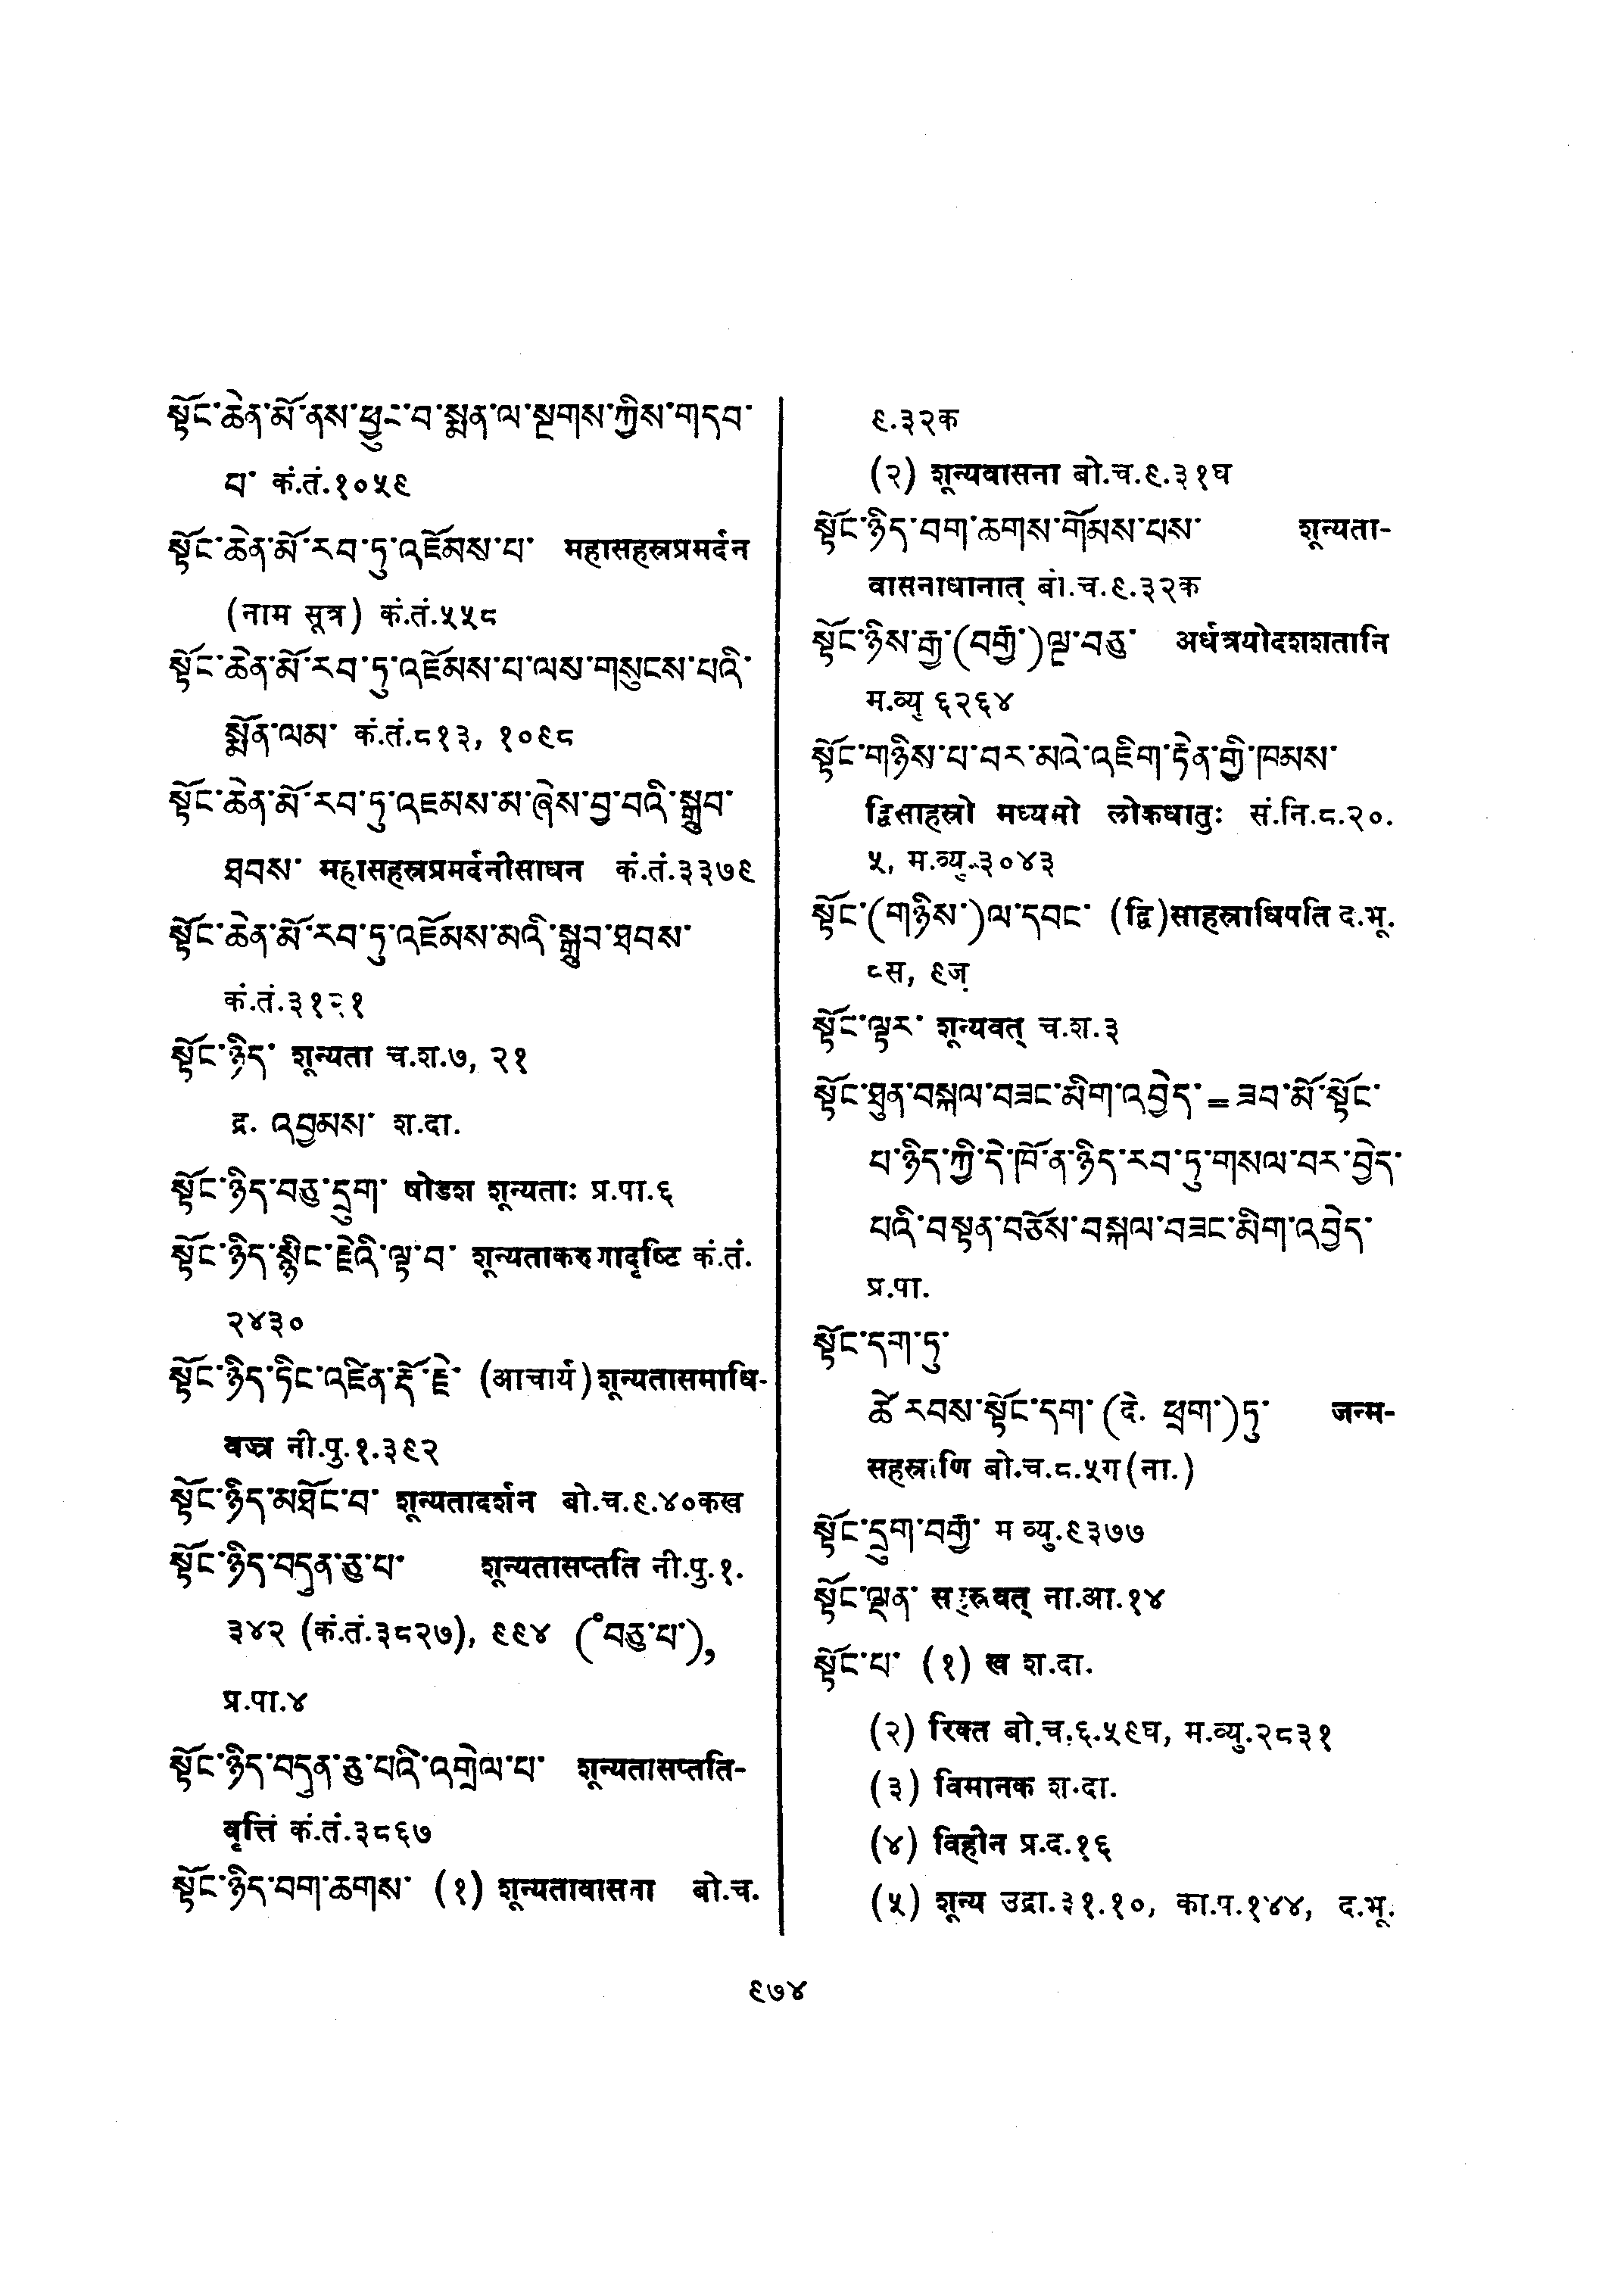 སྟོང་ཆེན་མོ་ནས་ཕྱུང་བ་སྨན་ལ་སྔགས་ཀྱིས་གདབ་
པ་ कं.तं.१०५९
སྟོང་ཆེན་མོ་རབ་ཏུ་འཇོམས་པ་ महासहस्रप्रमर्दन
(नाम सूत्र) कं.तं.५५८
སྟོང་ཆེན་མོ་རབ་ཏུ་འཇོམས་པ་ལས་གསུངས་པའི་
སྨོན་ལམ་ कं.तं.८१३, १०९८
སྟོང་ཆེན་མོ་རབ་ཏུ་འཇམས་མ་ཞེས་བྱ་བའི་སྒྲུབ་
ཐབས་ महासहस्रप्रमर्दनीसाधन कं.तं.३३७९
སྟོང་ཆེན་མོ་རབ་ཏུ་འཇོམས་མའི་སྒྲུབ་ཐབས་
कं.तं.
སྟོང་ཉིད་ शून्यता च.श.७, २१
द्र. འབྱམས་ श.दा.
སྟོང་ཉིད་བཅུ་དྲུག་ षोडश शून्यताः प्र.पा.६
སྟོང་ཉིད་སྙིང་རྗེའི་ལྟ་བ་ शून्यताकरुणादृष्टि कं.तं.
२४३०
སྟོང་ཉིད་ཏིང་འཛིན་རྡོ་རྗེ་ (आचार्य) शून्यतासमाधि-
वज्र नी.पु.१.३९२
སྟོང་ཉིད་མཐོང་བ་ शून्यतादर्शन बो.च.९.४०कख
སྟོང་ཉིད་བདུན་ཅུ་པ་ शून्यतासप्तति नी.पु.१.
३४२ (कं.तं.३८२७), ९९४ (ཾབཅུ་པ་),
प्र.पा.४
སྟོང་ཉིད་བདུན་ཅུ་པའི་འགྲེལ་པ་ शून्यतासप्तति-
वृत्ति कं.तं.३८६७
སྟོང་ཉིད་བག་ཆགས་ (१) शून्यतावासना बो.च.
९.३२क
(२) शून्यवासना बो.च.९.३१घ
སྟོང་ཉིད་བག་ཆགས་གོམས་པས་ शून्यता-
वासनाधानात् बो.च.९.३२क
སྟོང་ཉིས་རྒྱ་(བརྒྱ་)ལྔ་བཅུ་ अर्धत्रयोदशशतानि
म.व्यु ६२६४
སྟོང་གཉིས་པ་བར་མའི་འཇིག་རྟེན་གྱི་ཁམས་
द्विसाहस्रो मध्यमो लोकधातुः सं.नि.८.२०.
५, म.व्यु.३०४३
སྟོང་(གཉིས་)ལ་དབང་ (द्वि)साहस्राधिपति द.भू.
८स, ९ज
སྟོང་ལྟར་ शून्यवत् च.श.३
སྟོང་ཐུན་བསྐལ་བཟང་མིག་འབྱེད་=ཟབ་མོ་སྟོང་
པ་ཉིད་ཀྱི་དེ་ཁོ་ན་ཉིད་རབ་ཏུ་གསལ་བར་བྱེད་
པའི་བསྟན་བཅོས་བསྐལ་བཟང་མིག་འབྱེད་
प्र.पा.
སྟོང་དག་ཏུ་
ཚེ རབས་སྟོང་དག་(དེ. ཕྲག་)ཏུ་ जन्म-
सहस्राणि बो.च.८.५ग(ना.)
སྟོང་དྲུག་བརྒྱ་ म व्यु.९३७७
སྟོང་ལྡན་ सहस्रवत् ना.आ.१४
སྟོང་པ་ (१) ख श.दा.
(२) रिक्त बो.च.६.५९घ, म.व्यु.२८३१
(३) विमानक श.दा.
(४) विहीन प्र.द.१६
(५) शून्य उद्रा.३१.१०, का.प.१४४, द.भू.
९७४